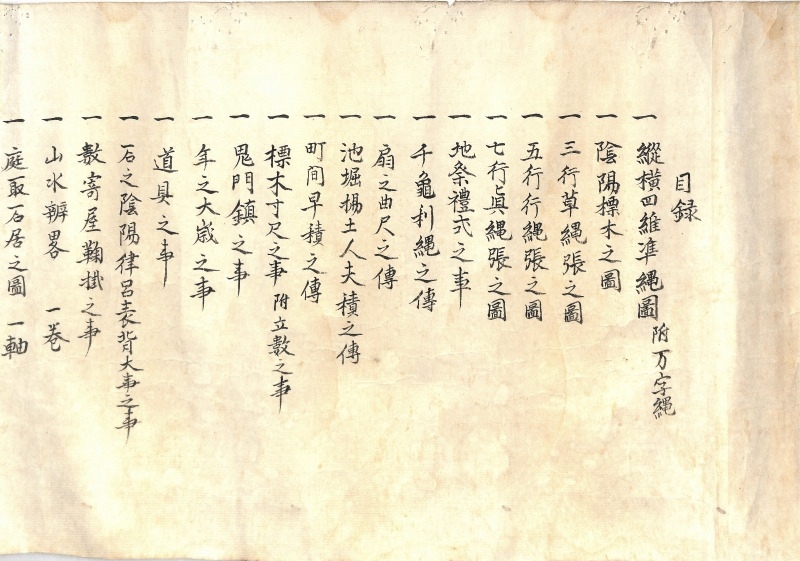 目録
一 縱横四維準縄圖 附万字縄
一 陰陽標木之圖
一 三行草縄張之圖
一 五行行縄張之圖
一 七行眞縄張之圖
一 地祭禮式之事
一 千龜利縄之傳
一 扇之曲尺之傳
一 池堀揚土人夫積之傳
一 町間早積之傳
一 標木寸尺之事 附立數之事
一 鬼門鎮之事
一 年之大歳之事
一 道具之事
一 石之陰陽律呂表背大事之事
一 數寄屋鞠掛之事
一 山水辨畧 一巻
一 庭取石居之圖 一軸